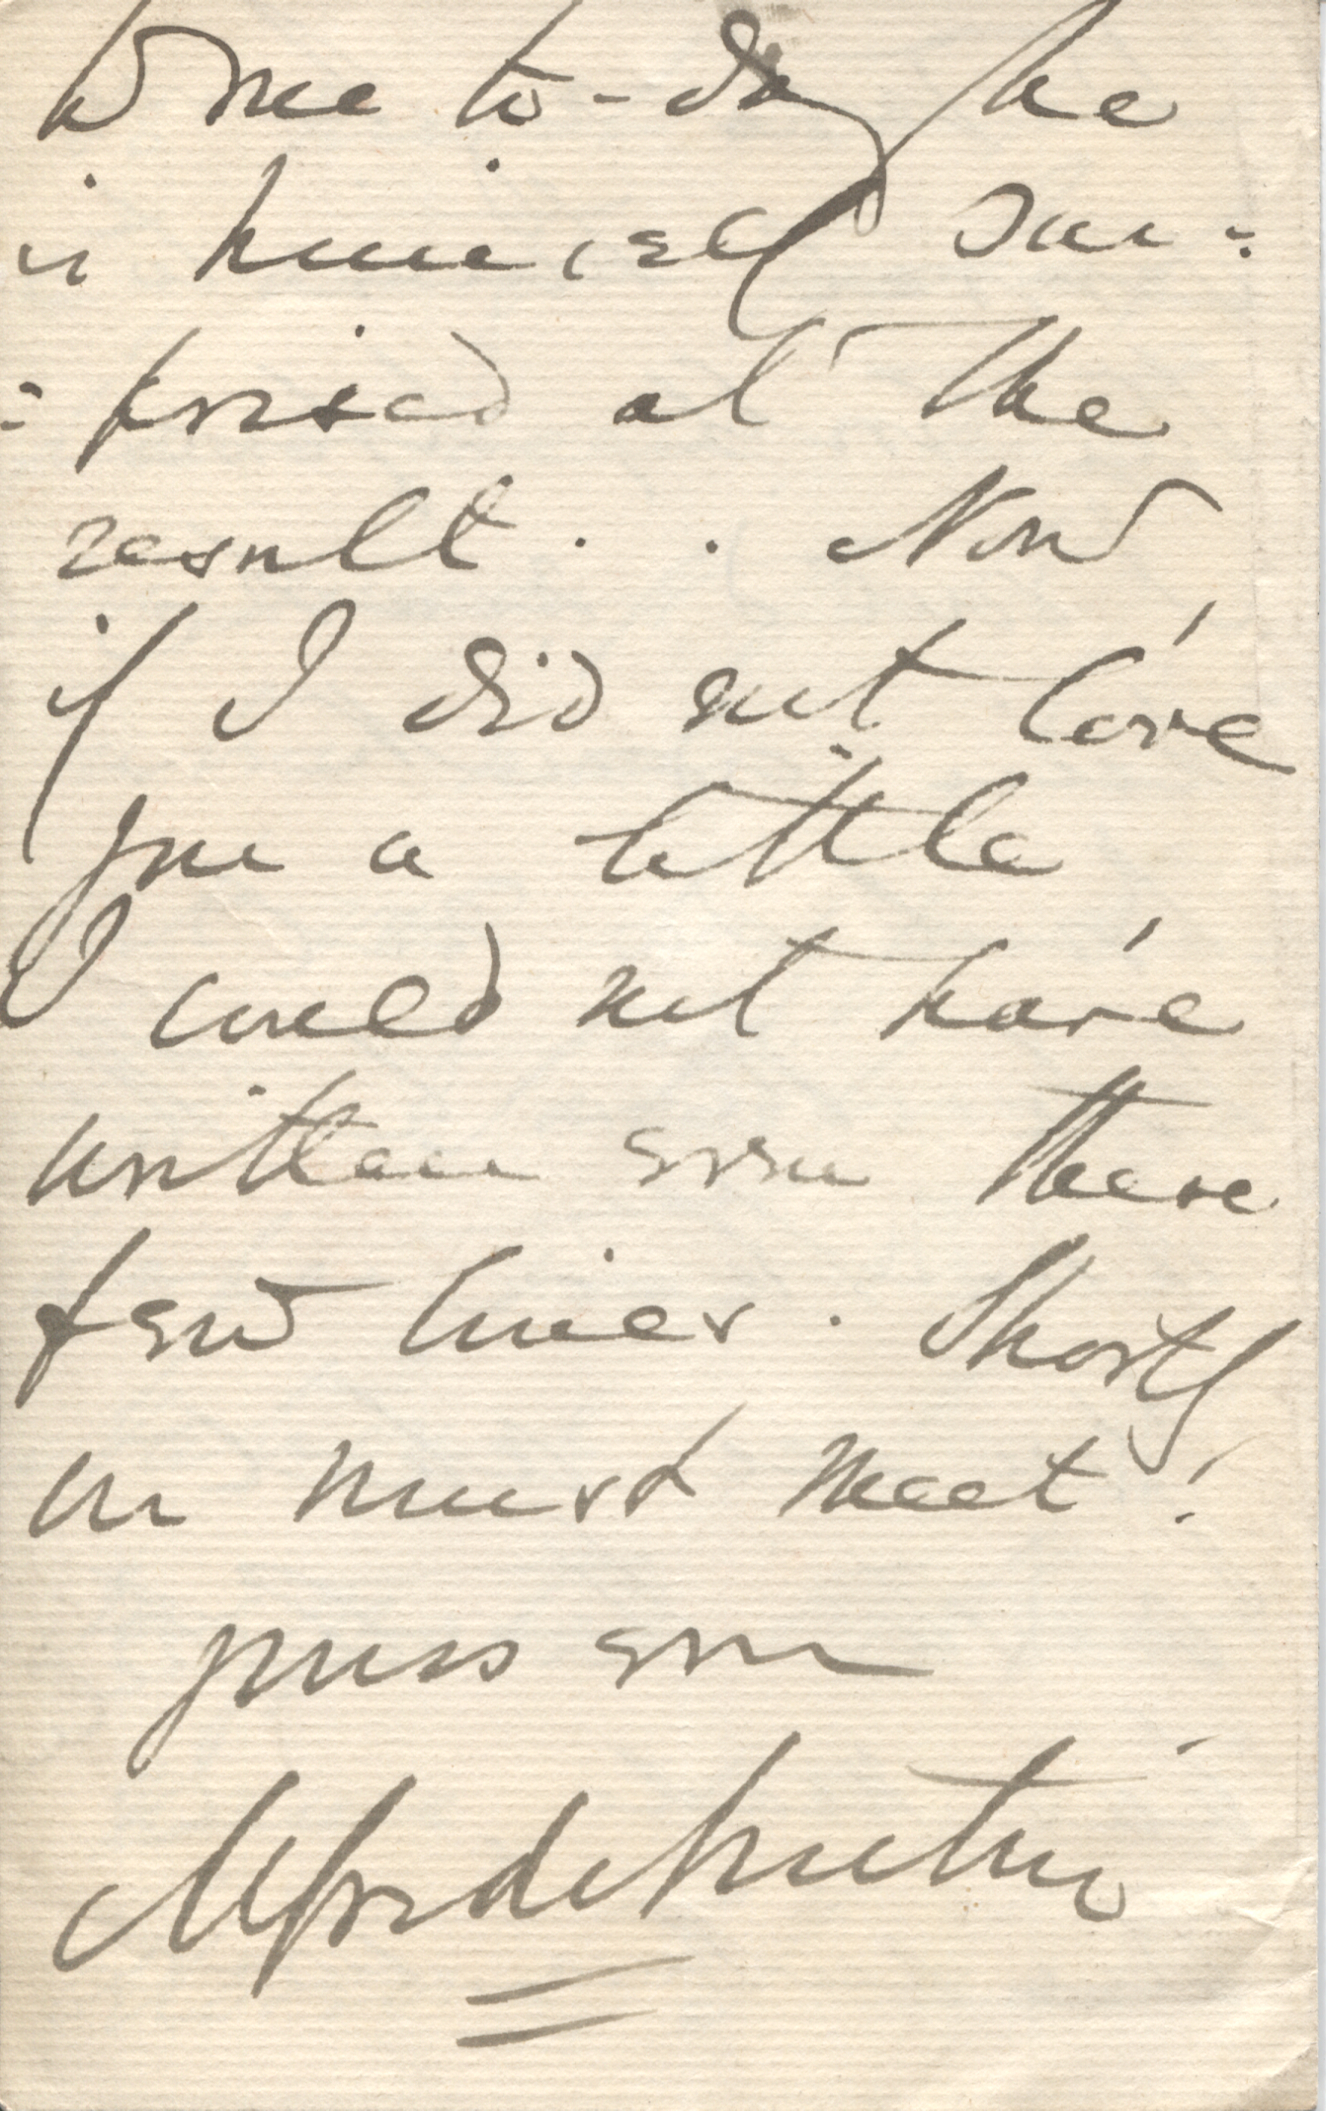 to me to-day he
is himself sur=
=prised at the
result . . Now
if I did not love
you a little
I could not have
written even these
few lines. Shortly
we must meet!
yours ever